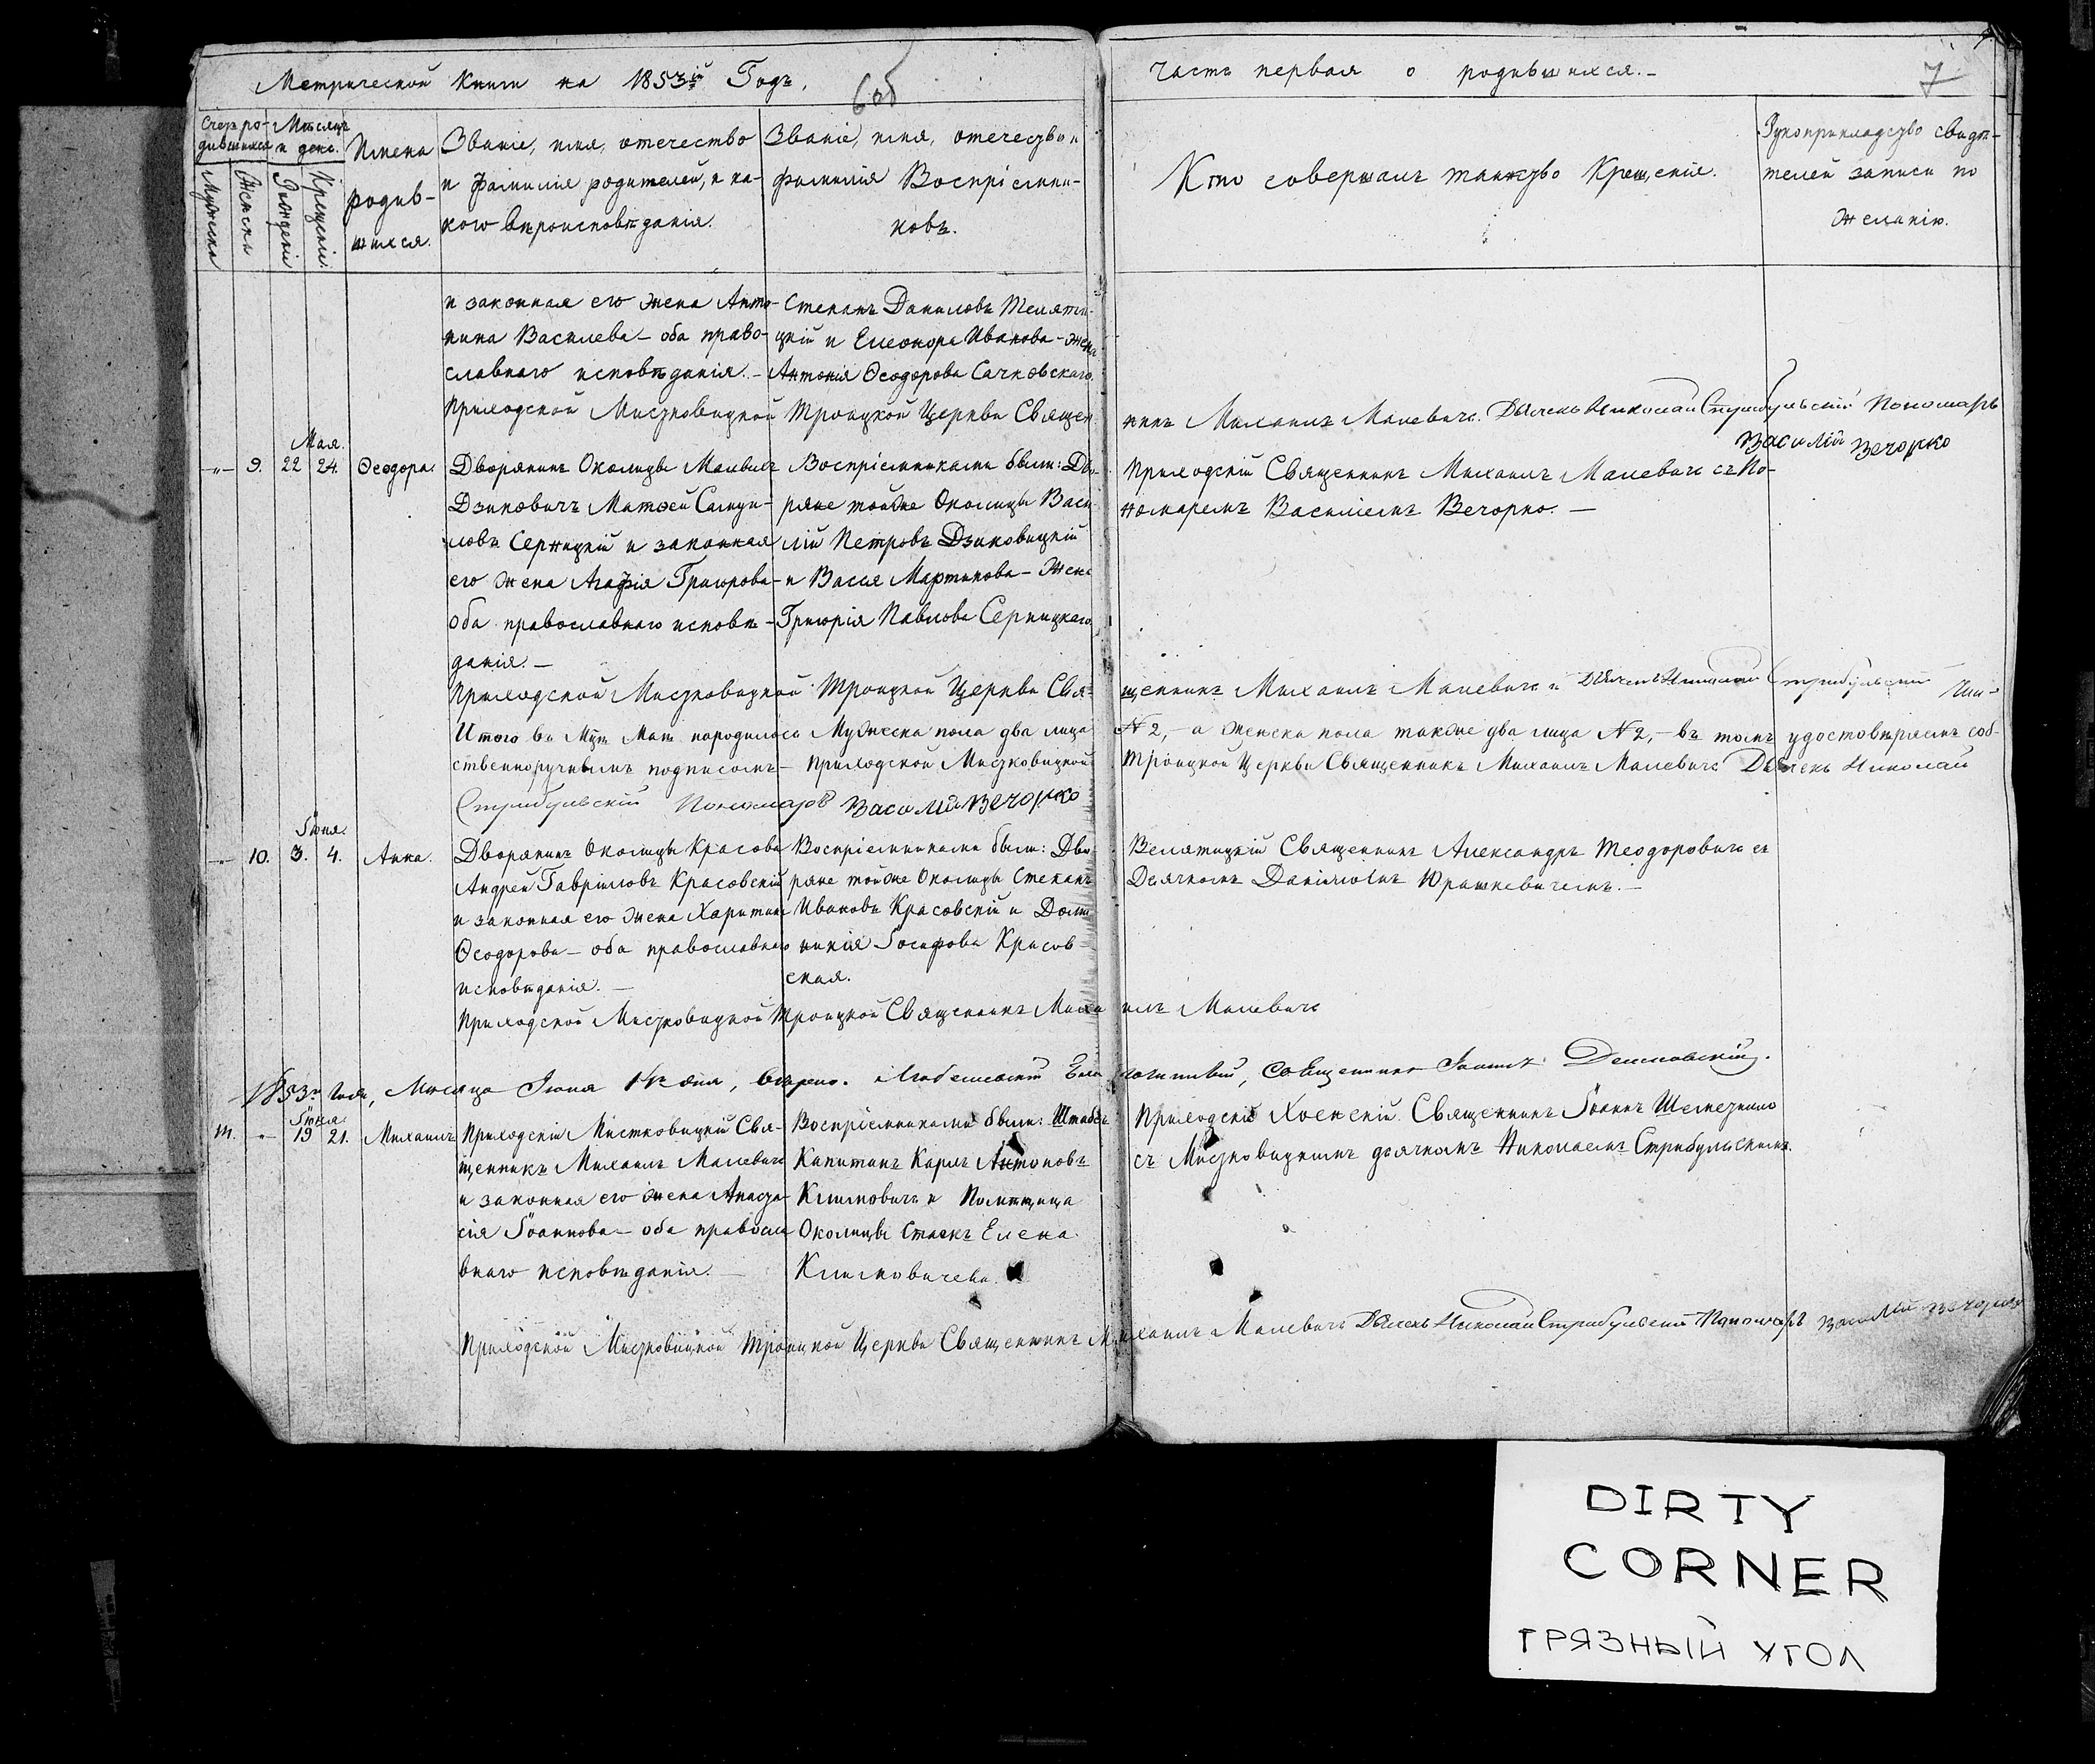 Метрической Книги на 1853й Годъ.
6об
Часть первая о родившихся.
7
Счетъ родившихся
Мѣсяцъ и день.
Мужеска
Женска
Рожденія
Крещенія.
Имена
родив-
шихся.
Званіе, имя, отечество
и фамилія родителей, и ка-
кого вѣроисповѣданія.
Званіе, имя, отечество и
фамилія Воспріемни-
ковъ.
Кто совершалъ таинство Крещенія.
Рукоприкладство свидѣ-
телей записи по
желанію.
и законная его жена Анто-
нина Василева – оба право-
славнаго исповѣданія. –
Степанъ Даниловъ Теляти-
цкій и Елеонора Иванова – жена
Антонія Ѳеодорова Сачковскаго.
Приходской Мистковицкой Троицкой Церкви Священ
никъ Михаилъ Малевичъ. Дьячекъ Николай Стрибульский Пономаръ
Василій Вечорко
Мая.
9. 22 24. Ѳеодора.
Дворянинъ Околицы
Дзиковичъ Матѳей Самуи-
ловъ Серницкій и законная
его жена Агафія Григорова –
оба православнаго исповѣ-
данія. –
Воспріемниками были: Дво-
ряне тойже Околицы Васи-
лій Петровъ Дзиковицкій
и Васса Мартинова – Жена
Григорія Павлова Серницкаго
Приходскій Священникъ Михаилъ Малевичъ съ По-
номаремъ Василіемъ Вечорко. –
Приходской Мистковицкой Троицкой Церкви Свя-
щенникъ Михаилъ Малевичъ и Дьячекъ Николай Стрибульский
Итого въ Маѣ народилось Мужеска пола два лица
№ 2, – а женска пола также два лица № 2, – въ томъ удостовѣряемъ соб-
ственноручнымъ подписомъ – Приходской Мистковицкой
Троицкой Церкви Священникъ Михаилъ Малевичъ Дьячекъ Николай
Стрибульскій Пономаръ Василій Вечорко
Іюня.
10. 3. 4. Анна.
Дворянинъ Околицы Красова
Андрей Гавріиловъ Красовскій
и законная его жена Харитина
Ѳеодорова – оба православнаго
исповѣданія. –
Воспріемниками были: Дво-
ряне тойже Околицы Степанъ
Ивановъ Красовскій и Доми-
никія Іосифова Красов-
ская.
Велятицкій Священникъ Александръ Теодоровичъ съ
Дьячкомъ Даніиломъ Юрашкевичемъ. –
Приходской Мистковицкой Троицкой Священникъ Миха
илъ Малевичъ
1853го Года, Мѣсяца Іюня дня,
Священникъ Іоаннъ
Іюня.
111. 19 21. Михаилъ
Приходскій Мистковицкій Свя-
щенникъ Михаилъ Малевичъ
и законная его жена Анаста-
сія Іоаннова – оба правосла
внаго исповѣданія. –
Воспріемниками были: Штабсъ
Капитанъ Карлъ Антоновъ
Климовичъ и Помѣщица
Околицы Стаекъ Елена
Климовичева.
Приходскій Хоенскій Священникъ Іоаннъ
съ Мистковицкимъ дьячкомъ Николаемъ Стрибульскимъ.
Приходской Мистковицкой Троицкой Церкви Священникъ Михаилъ Малевичъ Дьячекъ Николай Стрибульский Пономаръ Василій Вечорко
DIRTY
CORNER
ГРЯЗНЫЙ УГОЛ